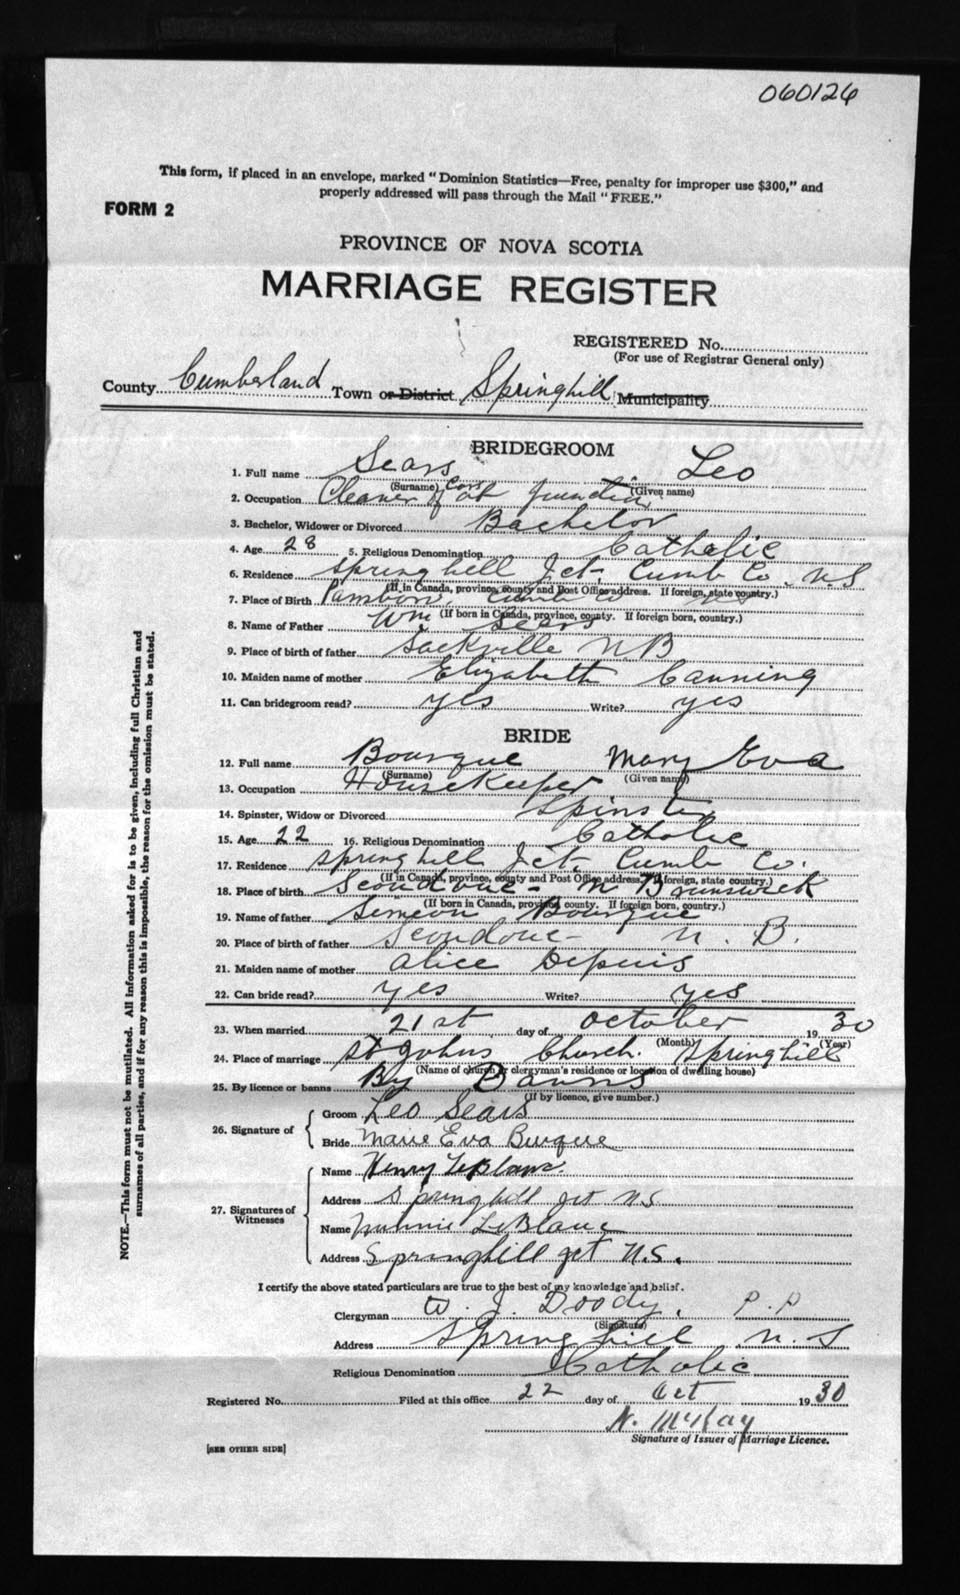 060126
This form, if placed in an envelope, marked "Dominion Statistics—Free, penalty for improper use $300," and
properly addressed will pass through the Mail "FREE."
FORM 2
PROVINCE OF NOVA SCOTIA
MARRIAGE REGISTER
REGISTERED No.
(For use of Registrar General only)
County Cumberland Town or District Springhill Municipality
BRIDEGROOM
1. Full name Sears Leo
(Surname) (Given name)
2. Occupation Cleaner of Cars at Junction
3. Bachelor, Widower or Divorced Bachelor
4. Age 28 5. Religious Denomination Catholic
6. Residence Springhill Jct. Cumb Co. N S
(If in Canada, province, county and Post Office address. If foreign, state country.)
7. Place of Birth Cumb Co NS
(If born in Canada, province, county. If foreign born, country.)
8. Name of Father Wm Sears
9. Place of birth of father Sackville N B
10. Maiden name of mother Elizabeth Canning
11. Can bridegroom read? yes Write? yes
BRIDE
12. Full name Bourque Mary Eva
(Surname) (Given name)
13. Occupation HouseKeeper
14. Spinster, Widow or Divorced Spinster
15. Age 22 16. Religious Denomination Catholic
17. Residence Springhill Jct. Cumb Co.
(If in Canada, province, county and Post Office address. If foreign, state country.)
18. Place of birth Scoudouc - N Brunswick
(If born in Canada, province, county. If foreign born, country.)
19. Name of father Simeon Bourque
20. Place of birth of father Scoudouc - N. B.
21. Maiden name of mother Alice Depuis
22. Can bride read? yes Write? yes
23. When married 21st day of October 1930
(Month) (Year)
24. Place of marriage St Johns Church. Springhill
(Name of church or clergyman's residence or location of dwelling house)
25. By licence or banns By Banns
(If by licence, give number.)
26. Signature of
Groom Leo Sears
Bride Marie Eva Burque
27. Signatures of Witnesses
Name Henry LeBlanc.
Address Springhill Jct NS
Name Minnie LeBlanc
Address Springhill Jct N.S.
I certify the above stated particulars are true to the best of my knowledge and belief.
Clergyman W. J. Doody, P.P
(Signature)
Address Springhill N. S
Religious Denomination Catholic
Registered No. Filed at this office 22 day of Oct 1930
N. McKay
Signature of Issuer of Marriage Licence.
[SEE OTHER SIDE]
NOTE.—This form must not be mutilated. All information asked for is to be given, including full Christian and
surnames of all parties, and if for any reason this is impossible, the reason for the omission must be stated.